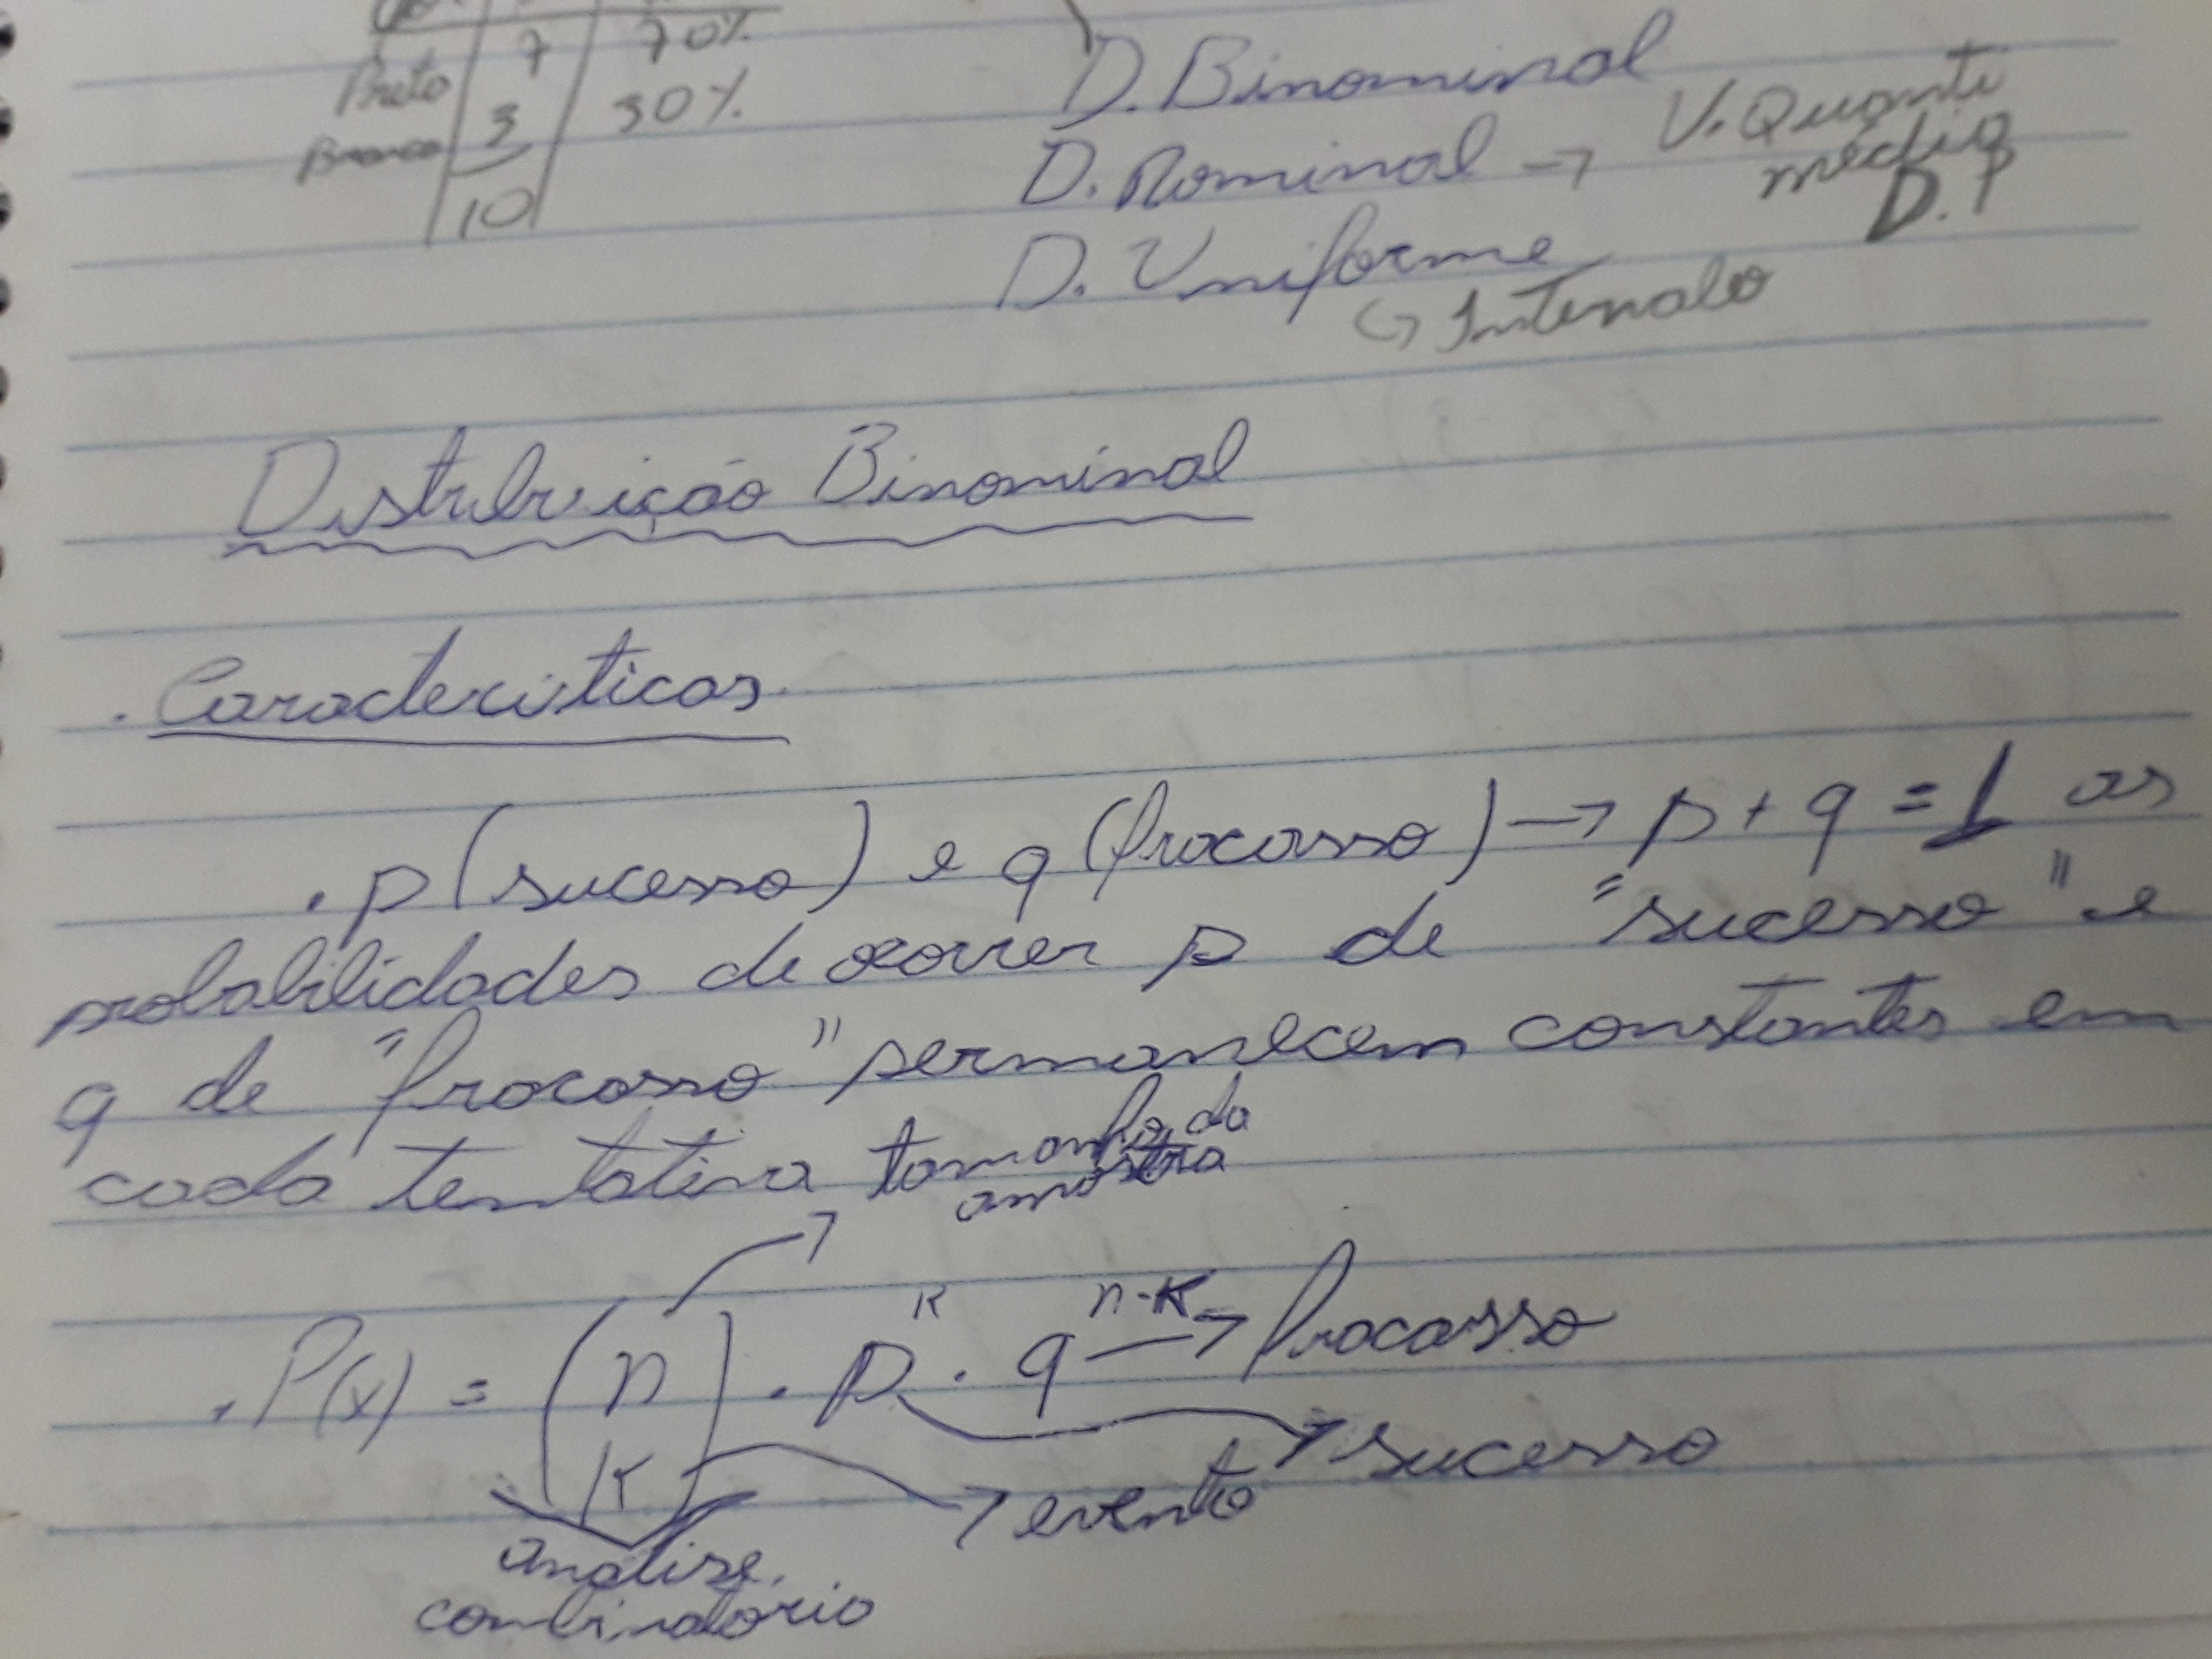 Preto 7 70%
Branco 3 30%
10
D. Binominal
D. Nominal → V. Quanti
média
D. P
D. Uniforme
↳ Intervalo
Distribuição Binominal
. Características.
. p (sucesso) e q (fracasso) → p + q = 1 as
probabilidades de ocorrer p de "sucesso" e
q de "fracasso" permanecem constantes em
cada tentativa tamanho da
amostra
. P(x) = (n k) . p^k . q^n-k → fracasso
→ sucesso
→ evento
análise
combinatório